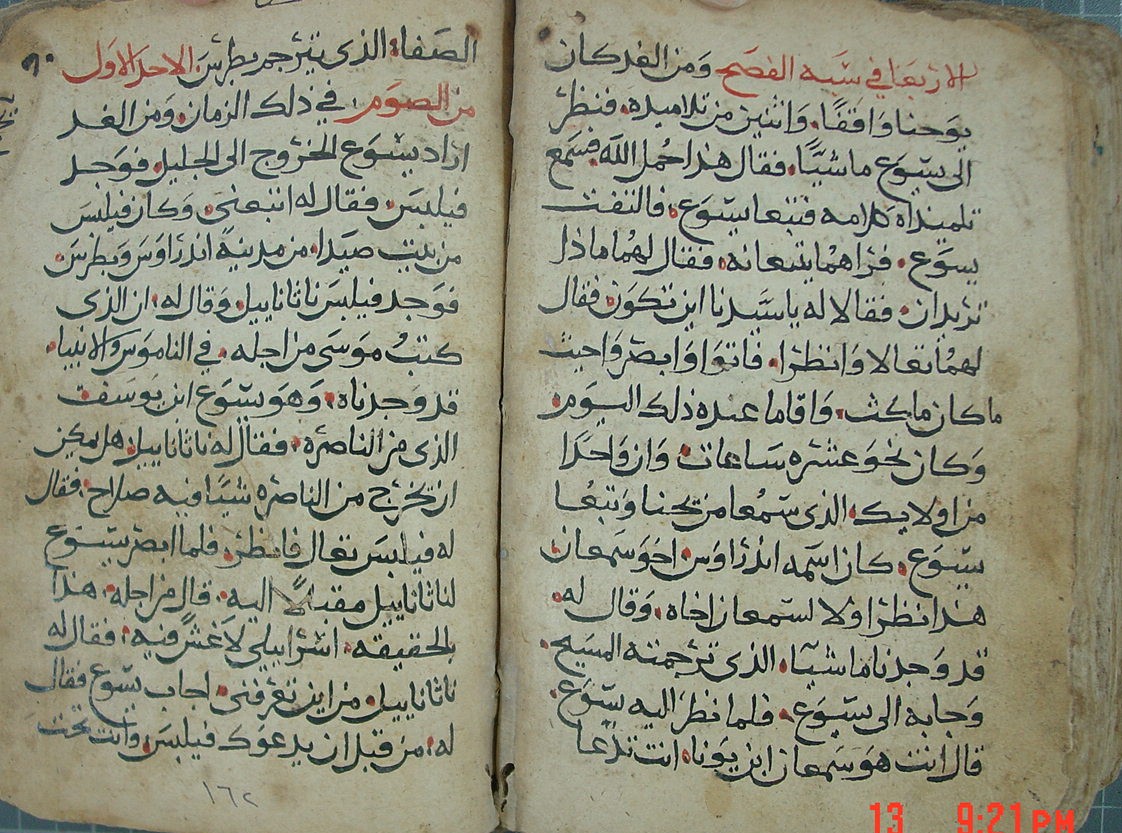 الاربعا في شبه الفصح ومن الغد كان
يوحنا واقفًا. واثنين من تلاميذه. فنظر
الى يسوع ماشيًا. فقال هذا حمل الله. فسمع
تلميذاه كلامه فتبعا يسوع. فالتفت
يسوع. فراهما يتبعانه. فقال لهما ماذا
تريدان. فقالا له يا سيدنا اين تكون. فقال
لهما تعالا وانظرا. فاتوا وابصروا حيث
ما كان ماكث. واقاما عنده ذلك اليوم.
وكان نحو عشره ساعات. وان واحدًا
من اولايك. الذي سمعا من يحنا وتبعا
يسوع. كان اسمه اندراوس اخو سمعان
هذا نظر اولا لسمعان اخاه. وقال له.
قد وجدنا ماشيا. الذي ترجمته المسيح.
وجابه الى يسوع. فلما نظر اليه يسوع.
قال انت هو سمعان ابن يونا. انت تدعا
الصفا. الذي يترجم بطرس. الاحد الاول
من الصوم. في ذلك الزمان. ومن الغد
اراد يسوع الخروج الى الجليل. فوجد
فيلبس. فقال له اتبعني. وكان فيلبس
من بيت صيدا. من مدينة اندراوس وبطرس.
فوجد فيلبس ناثاناييل. وقال له. ان الذي
كتب موسى من اجله. في الناموس والانبيا.
قد وجدناه. وهو يسوع ابن يوسف
الذي من الناصره. فقال له ناثاناييل. هل يمكن
ان يخرج من الناصره شيًا فيه صلاح. فقال
له فيلبس تعال فانظر. فلما ابصر يسوع
لناثاناييل مقبلًا اليه. قال من اجله. هذا
بالحقيقه. اسراييلي لا غش فيه. فقال له
ناثاناييل. من اين تعرفني. اجاب يسوع فقال
له. من قبل ان يدعوك فيلبس. وانت تحت
١٦٢
13 9:21 PM